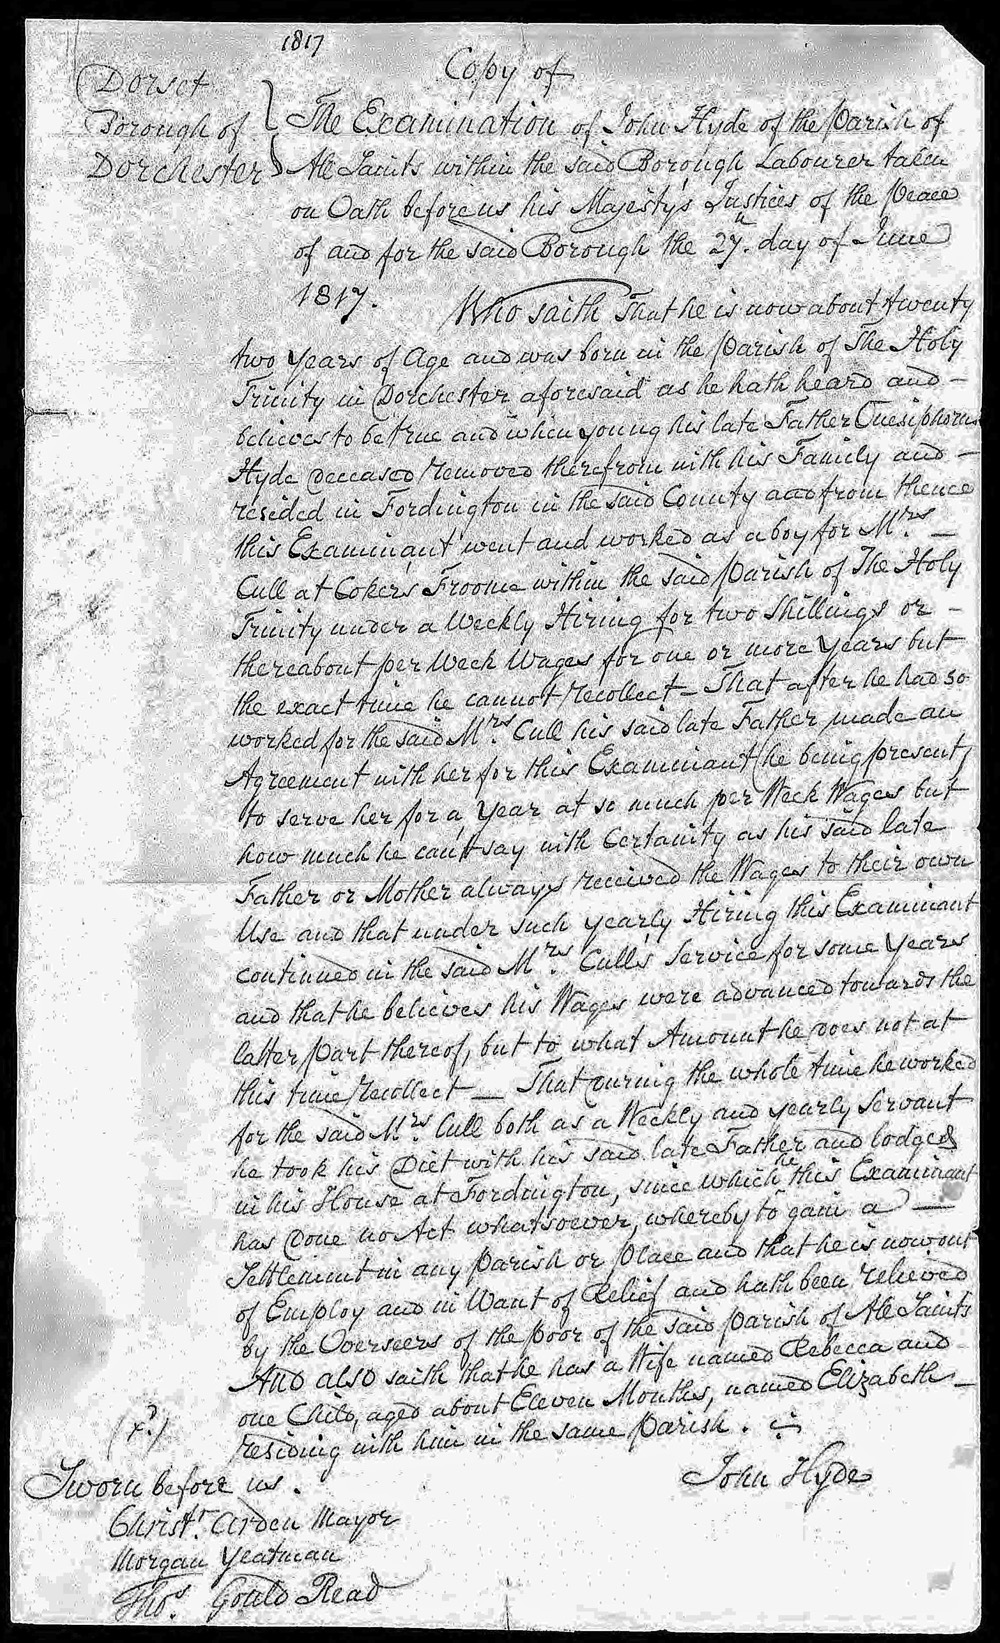 1817
Copy of
Dorset
Borough of
Dorchester
The Examination of John Hyde of the Parish of
All Saints within the said Borough Labourer taken
on Oath before us his Majesty's Justices of the Peace
of and for the said Borough the 27th day of June
1817. Who saith That he is now about twenty
two years of Age and was born in the Parish of The Holy
Trinity in Dorchester aforesaid as he hath heard and –
believes to be true and when young his late Father Onesiphorus
Hyde deceased removed therefrom with his Family and –
resided in Fordington in the said County and from thence
this Examinant went and worked as a boy for Mrs. –
Cull at Coker's Froome within the said Parish of The Holy
Trinity under a Weekly Hiring for two Shillings or –
thereabout per Week Wages for one or more Years but
the exact time he cannot recollect – That after he had so
worked for the said Mrs. Cull his said late Father made an
Agreement with her for this Examinant (he being present)
to serve her for a Year at so much per Week Wages but
how much he can't say with Certanity as his said late
Father or Mother always received the Wages to their own
Use and that under such yearly Hiring this Examinant
continued in the said Mrs. Cull's Service for some Years
and that he believes his Wages were advanced towards the
latter part thereof, but to what Amount he does not at
this time recollect — That during the whole time he worked
for the said Mrs. Cull both as a Weekly and yearly Servant
he took his Diet with his said late Father and lodged
in his House at Fordington, since which he this Examinant
has done no Act whatsoever, whereby to gain a —
Settlement in any Parish or Place and that he is now out
of Employ and in Want of Relief and hath been relieved
by the Overseers of the poor of the said Parish of All Saints
And also saith that he has a Wife named Rebecca and
one Child, aged about Eleven Months, named Elizabeth –
residing with him in the same Parish.
Sworn before us.
John Hyde
Christr. Arden Mayor
Morgan Yeatman
Thos. Gould Read